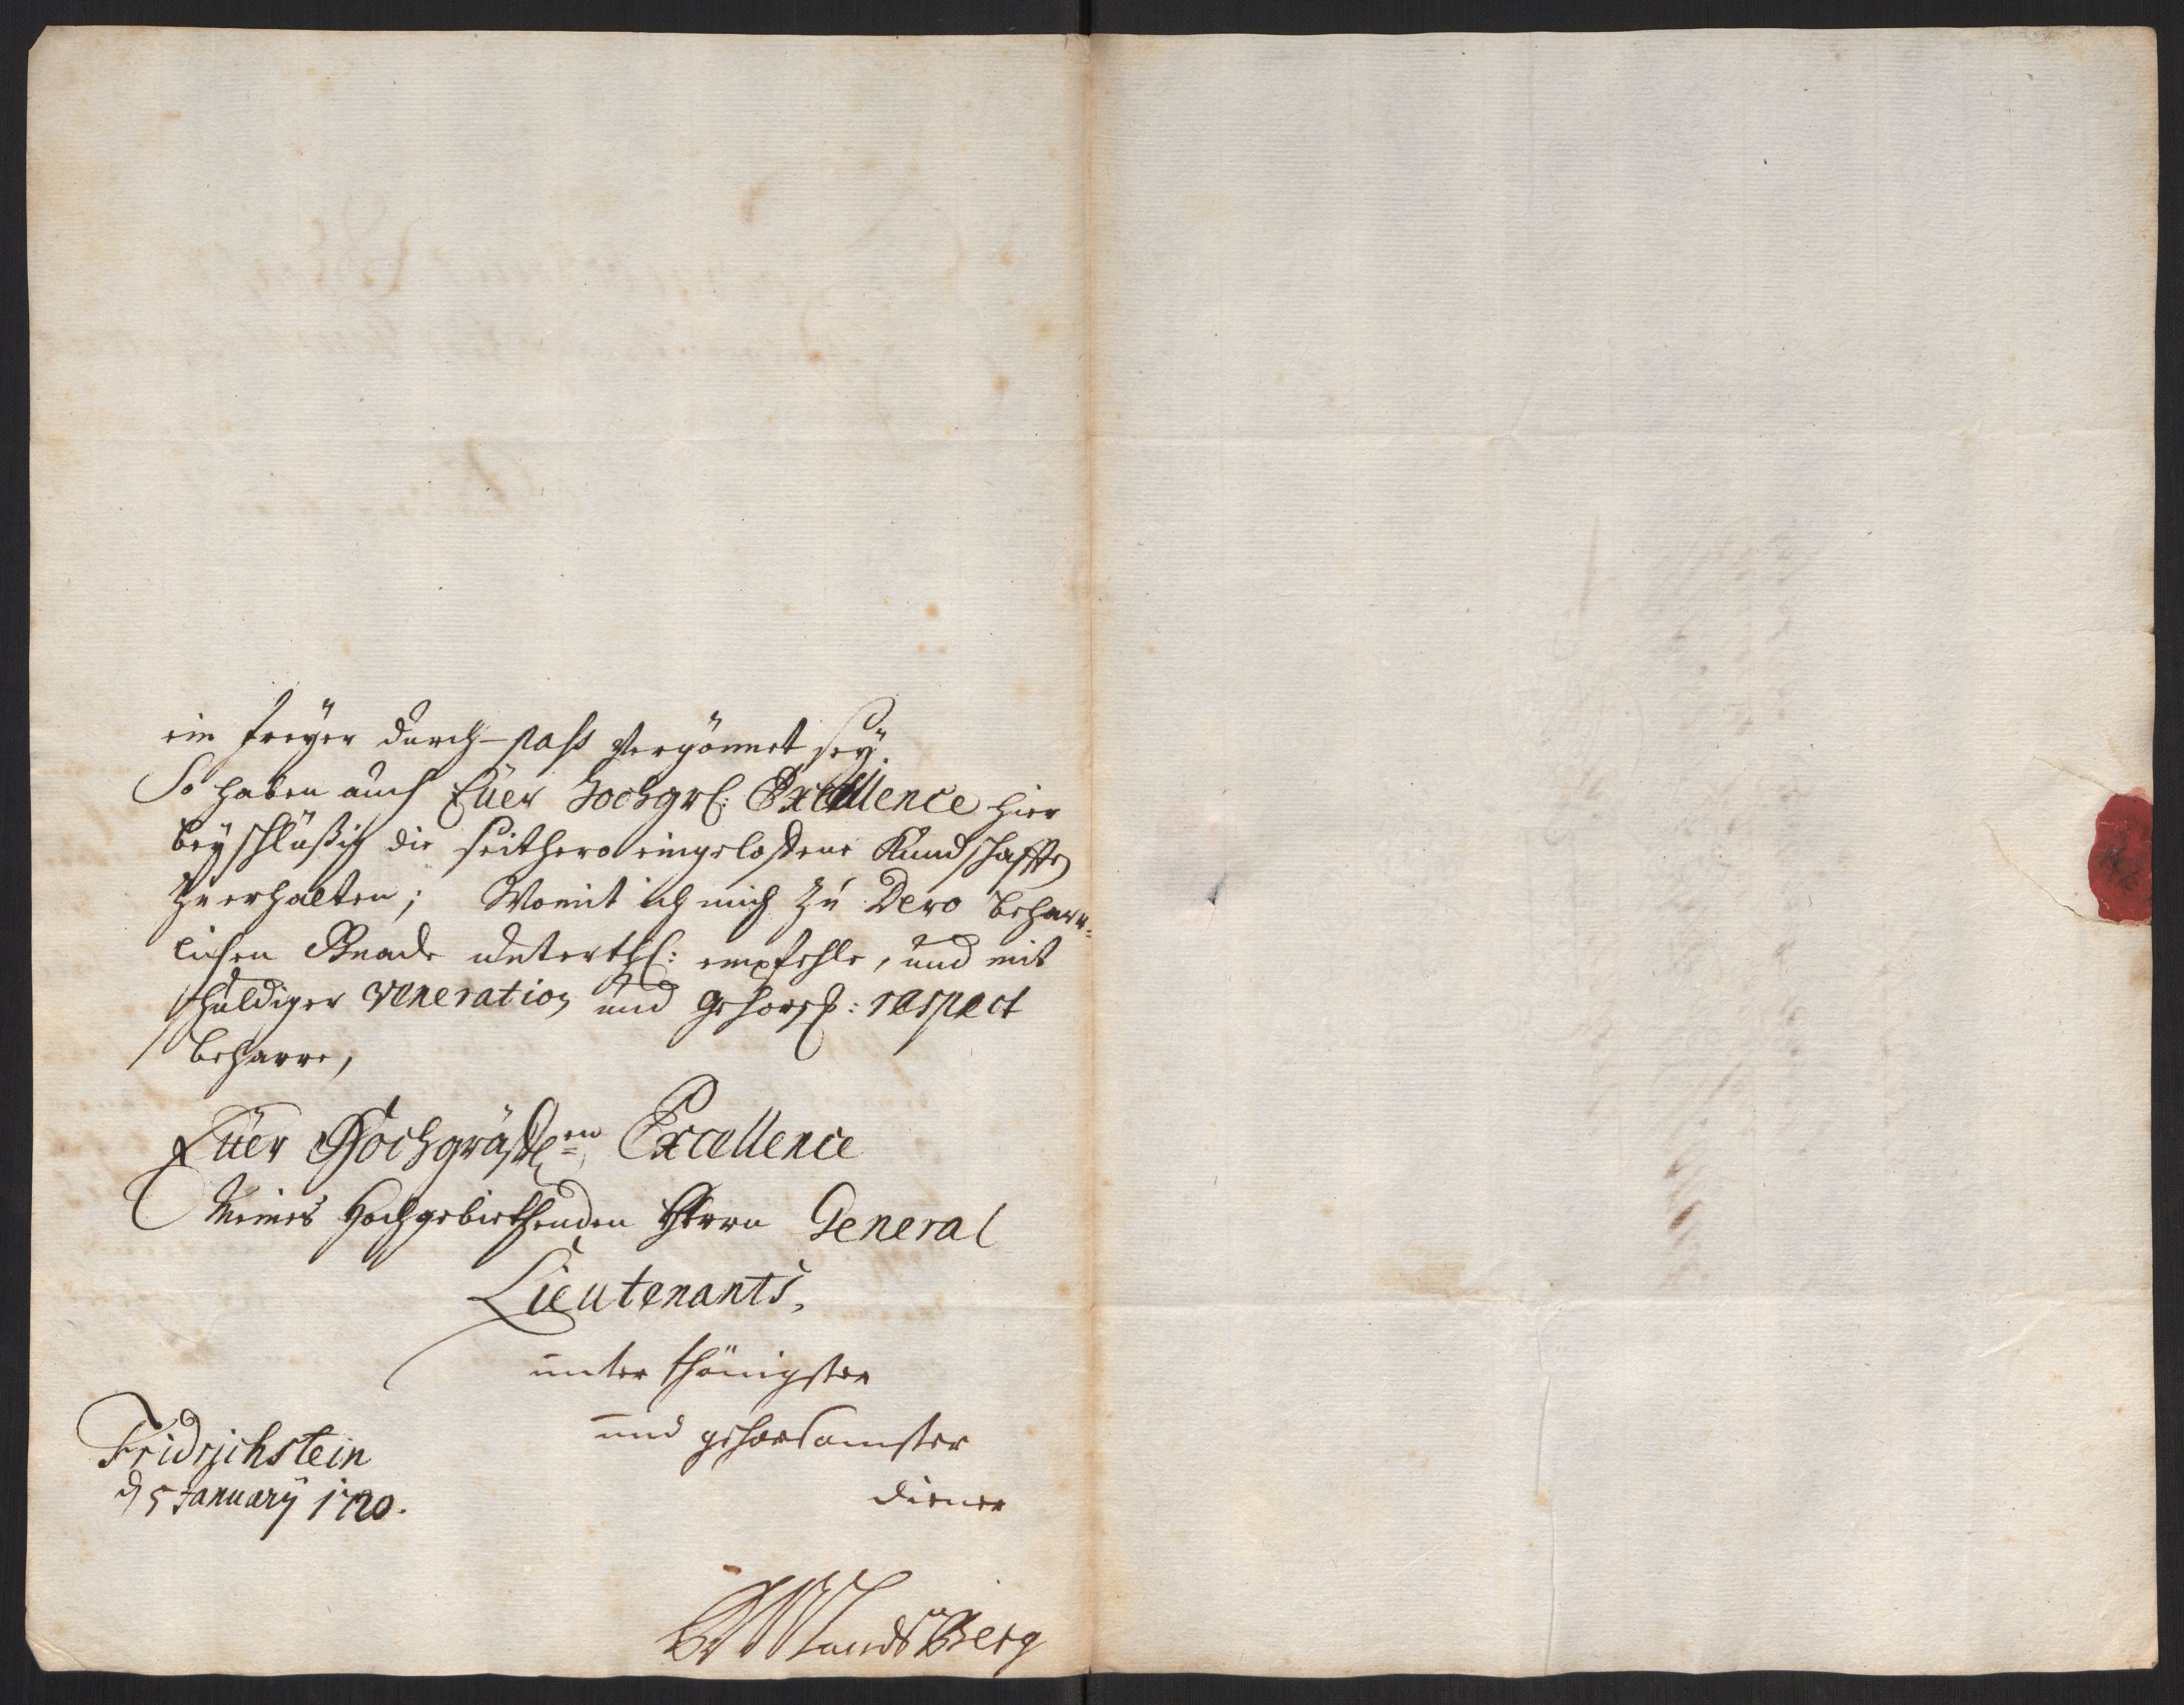 ein freÿer durch-pass vergönnet seÿ.
So haben auch Eüer Hochgrl: Excellence hier
beyschlüßig die seithero eingeloffene Kundschafften
zu erhalten; Womit ich mich zu Dero beharr=
lichen Gnade unterthl: empfehle, und mit
schuldiger veneration und gehors: respect
beharre,
Eüer Hochgräffl=en Excellence
Meines Hochgebiethenden Herrn General
Lieutenants,
unterthänigster
und gehorsamster
diener
Fridrichstein
d 5 January 1720.
Landsberg